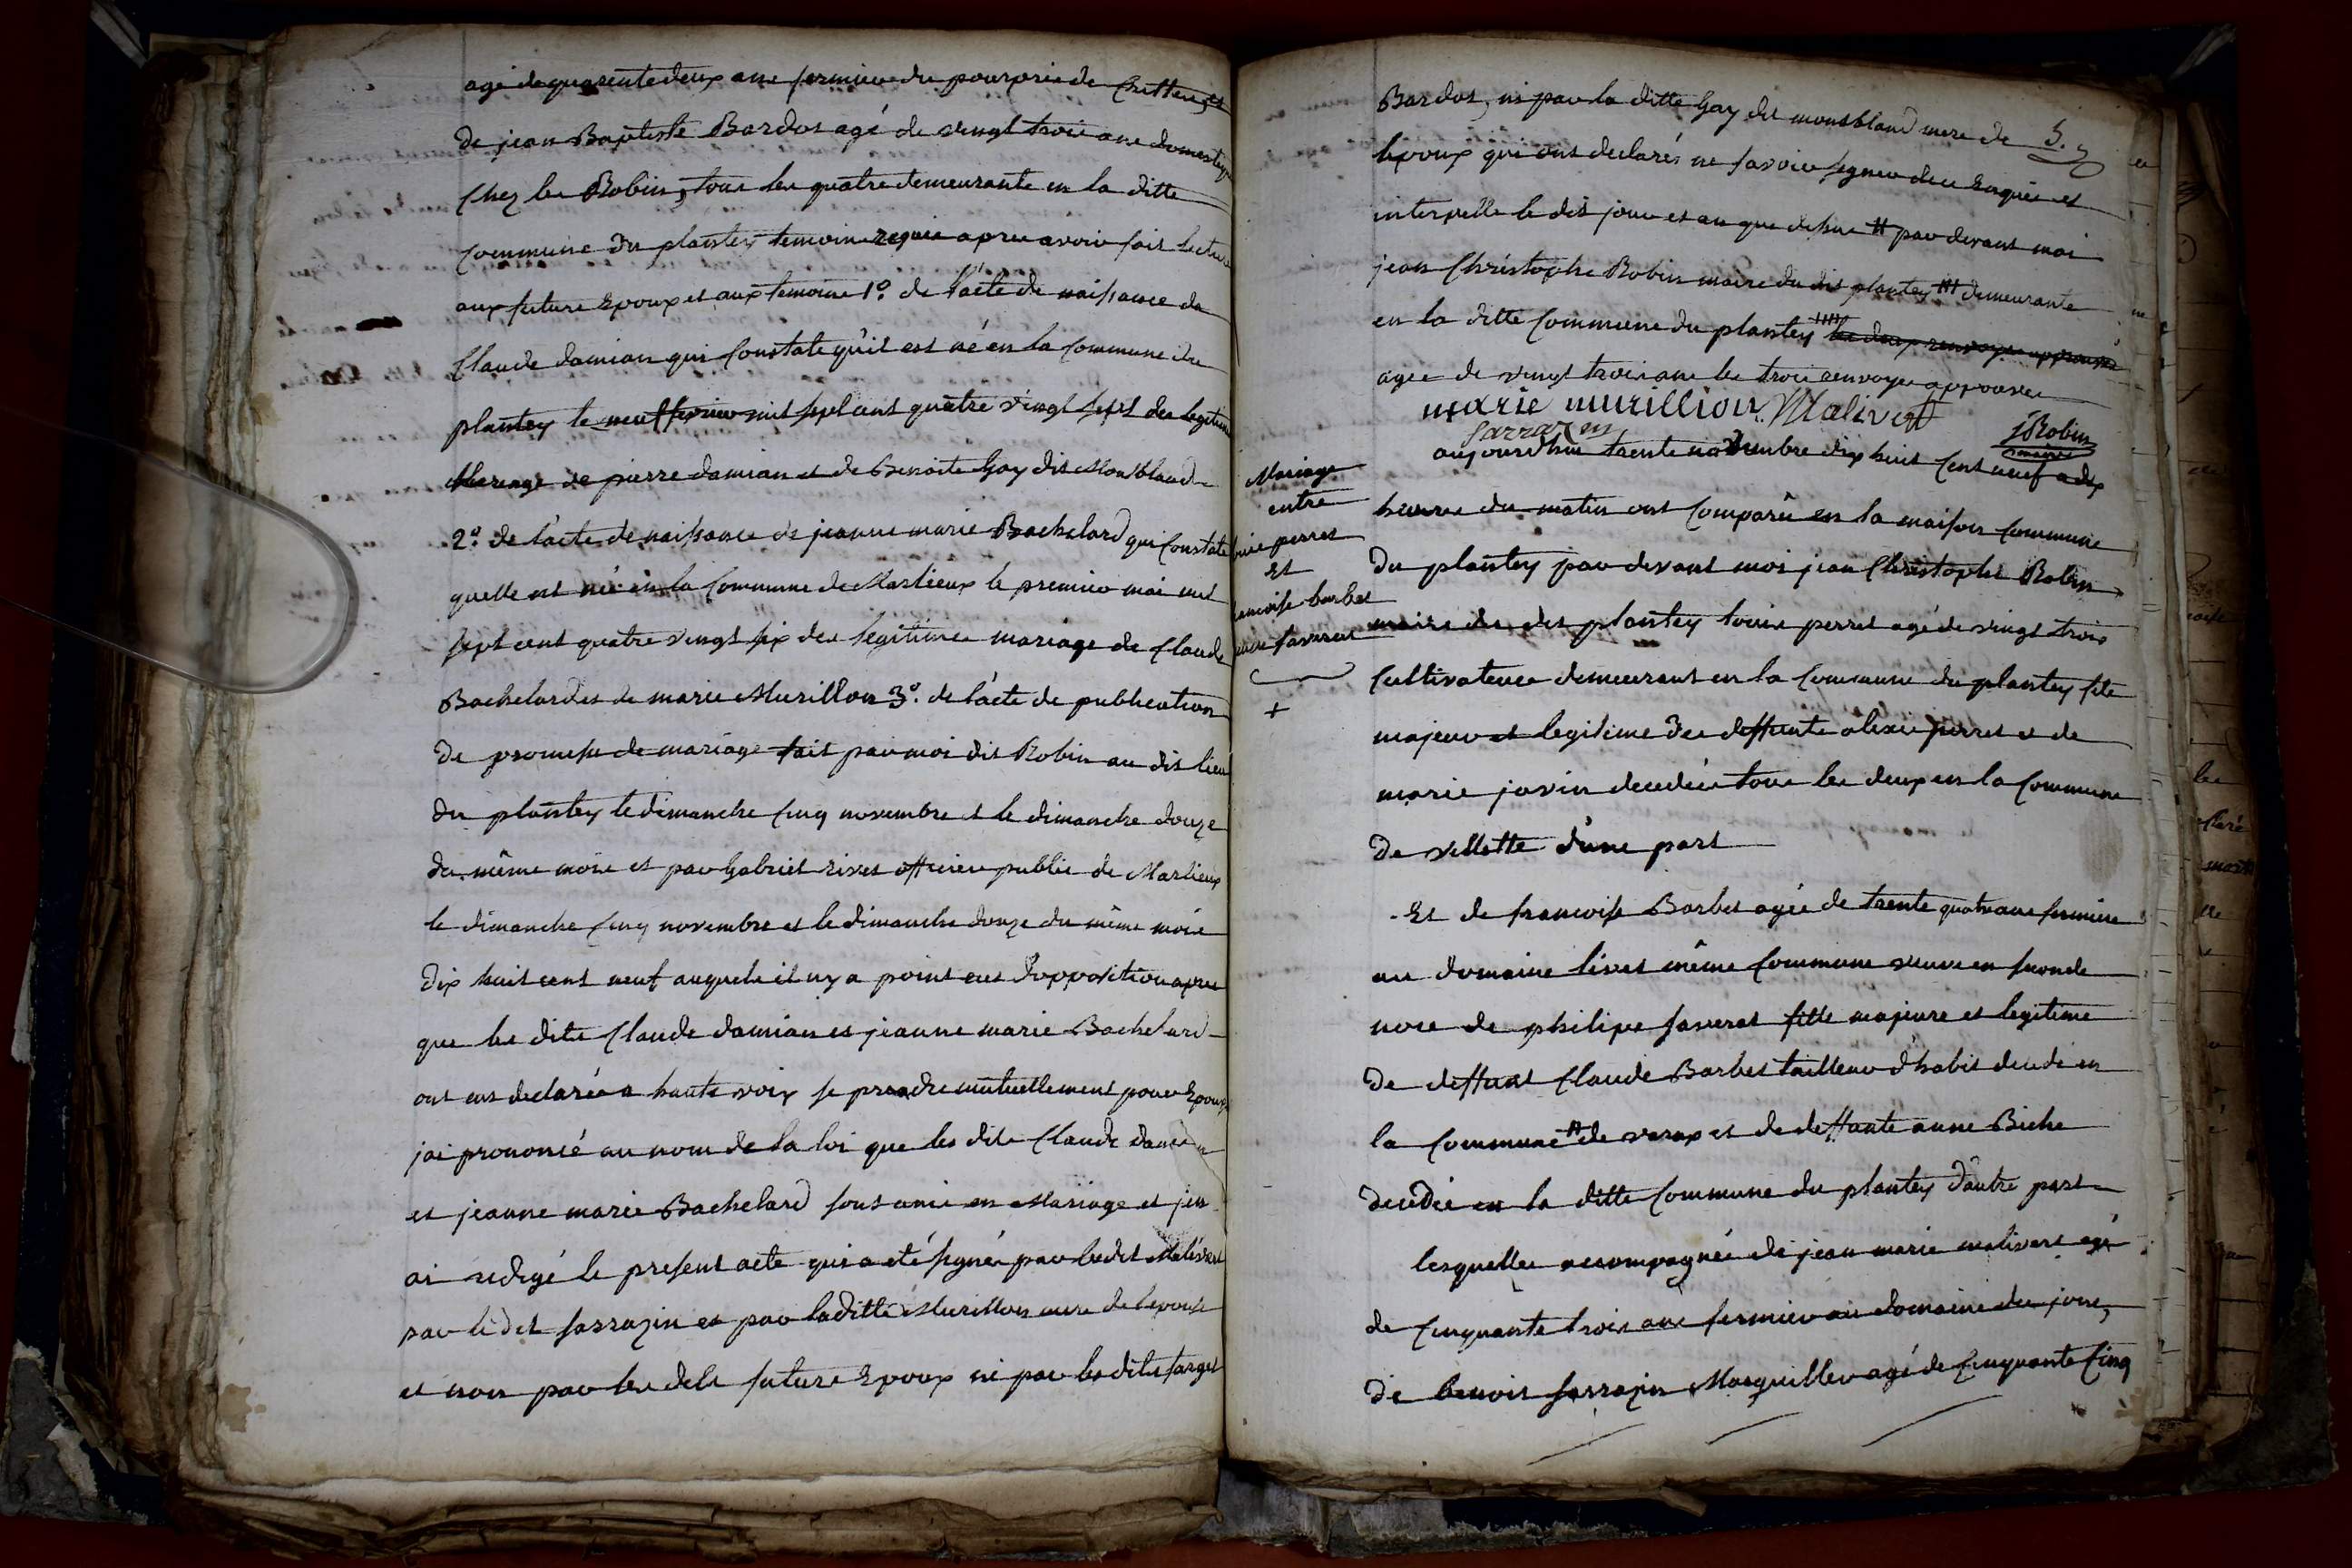 agé de quarente deux ans fermier du pourprie de
de jean Baptiste Bardos agé de vingt trois ans domestique
Chez les Robin, tous les quatre demeurants en la ditte
Commune du plantey temoins requis apres avoir fait lecture
aux futurs Epoux et aux temoins 1º. de l'acte de naissance de
Claude damian qui Constate qu'il est né en la Commune du
plantey le neuf fevrier mil sept cent quatre vingt sept du legitime
Mariage de pierre damian et de Benoite Gay dit Monsbland
2º. de l'acte de naissance de jeanne marie Bachelard qui Constate
quelle est né en la Commune de Marlieux le premier mai mil
sept cent quatre vingt six du legitime mariage de Claude
Bachelard et de marie Murillon 3º. de l'acte de publication
de promesse de mariage fait par moi dit Robin au dit lieu
du plantey le dimanche Cinq novembre et le dimanche douze
du même mois et par Gabriel rives officier public de Marlieux
le dimanche Cinq novembre et le dimanche douze du même mois
dix huit cent neuf auquels il ny a point eut d'opposition apres
que les dits Claude damian et jeanne marie Bachelard
ont eut declarés a haute voix se prendre mutuellement pour Epoux
jai prononcé au nom de la loi que les dits Claude damian
et jeanne marie Bachelard sont unis en Mariage et jen
ai redigé le present acte qui a eté signés par ledit Malivert
par le dit sarrazin et par laditte Murillon mere de l'epouse
et non par les dits futurs Epoux ni par les dits farget
Bardos, ni par la ditte Gay dit monsbland mere de
lepoux qui ont declarés ne savoir signer de ce Enquis et
interpelle le dit jour et an que dessus # par devant moi
jean Christophe Robin maire du dit plantey ### demeurante
en la ditte Commune du plantey les deux renvoyes approuvés
agée de vingt trois ans les trois renvoyes approuvés
marie murillion Malivert
sarrazin
jRobin
maire
Mariage
entre
perret
Et
barbet
faverat
+
aujourdhui trente novembre dix huit Cent neuf a dix
heures du matin ont Comparû en la maison Commune
du plantey par devant moi jean Christophe Robin
maire du dit plantey louis perret agé de vingt trois
Cultivateur demeurant en la Commune du plantey fils
majeur et legitime des deffunts alexis perret et de
marie javin decedés tous les deux en la Commune
de villette d'une part
Et de francoise Barbet agée de trente quatre ans fermiere
au domaine livet même Commune veuve en seconde
noce de philipe faverat fille majeure et legitime
de deffunt Claude Barbet tailleur d'habit decedé en
la Commune # de verax et de deffunte anne Biche
decedée en la ditte Commune du plantey d'autre part
lesquelles accompagnés de jean marie malivert agé
de Cinquante trois ans fermier au domaine du jorre,
de benoit sarrazin Marguillier agé de Cinquante Cinq